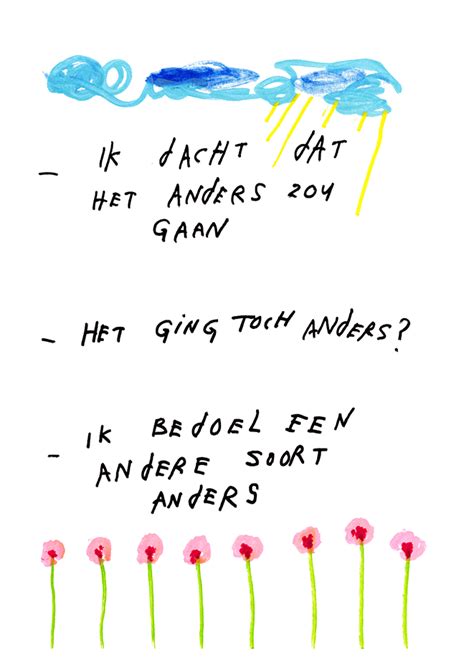 - IK DACHT DAT
HET ANDERS ZOU
GAAN
- HET GING TOCH ANDERS?
- IK BEDOEL EEN
ANDERE SOORT
ANDERS